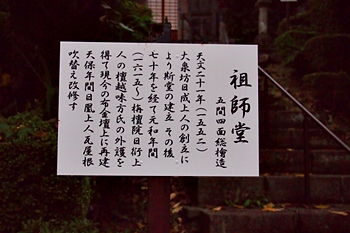 祖師堂
五間四面総檜造
天文二十一年（一五五二）
大乗坊日成上人の創立に
より斯堂の建立 その後
七十年を経て元和年間
（一六一五〜）梅檀院日術上
人の檀越味方氏の外護を
得て現今の布金壇上に再建
天保年間日凰上人瓦屋根
吹替え改修す